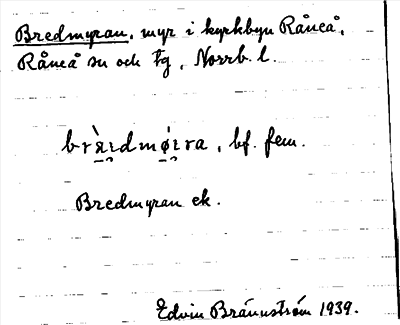 Bredmyran, myr i kyrkbyn Råneå,
Råneå sn och tg, Norrb. l.
bf. fem.
Bredmyran ek.
Edvin Brännström 1939.